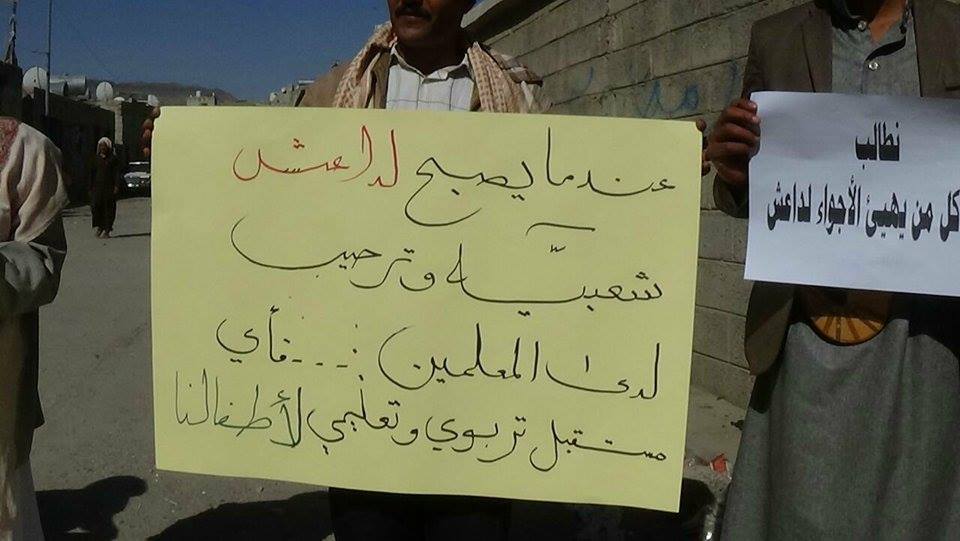 عندما يصبح لداعش
شعبيّه وترحيب
لدى المعلمين :---فأي
مستقبل تربوي وتعليمي لأطفالنا
نطالب
كل من يهيئ الأجواء لداعش